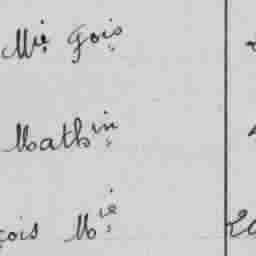 Mie Gois
Mathin
çois Mie